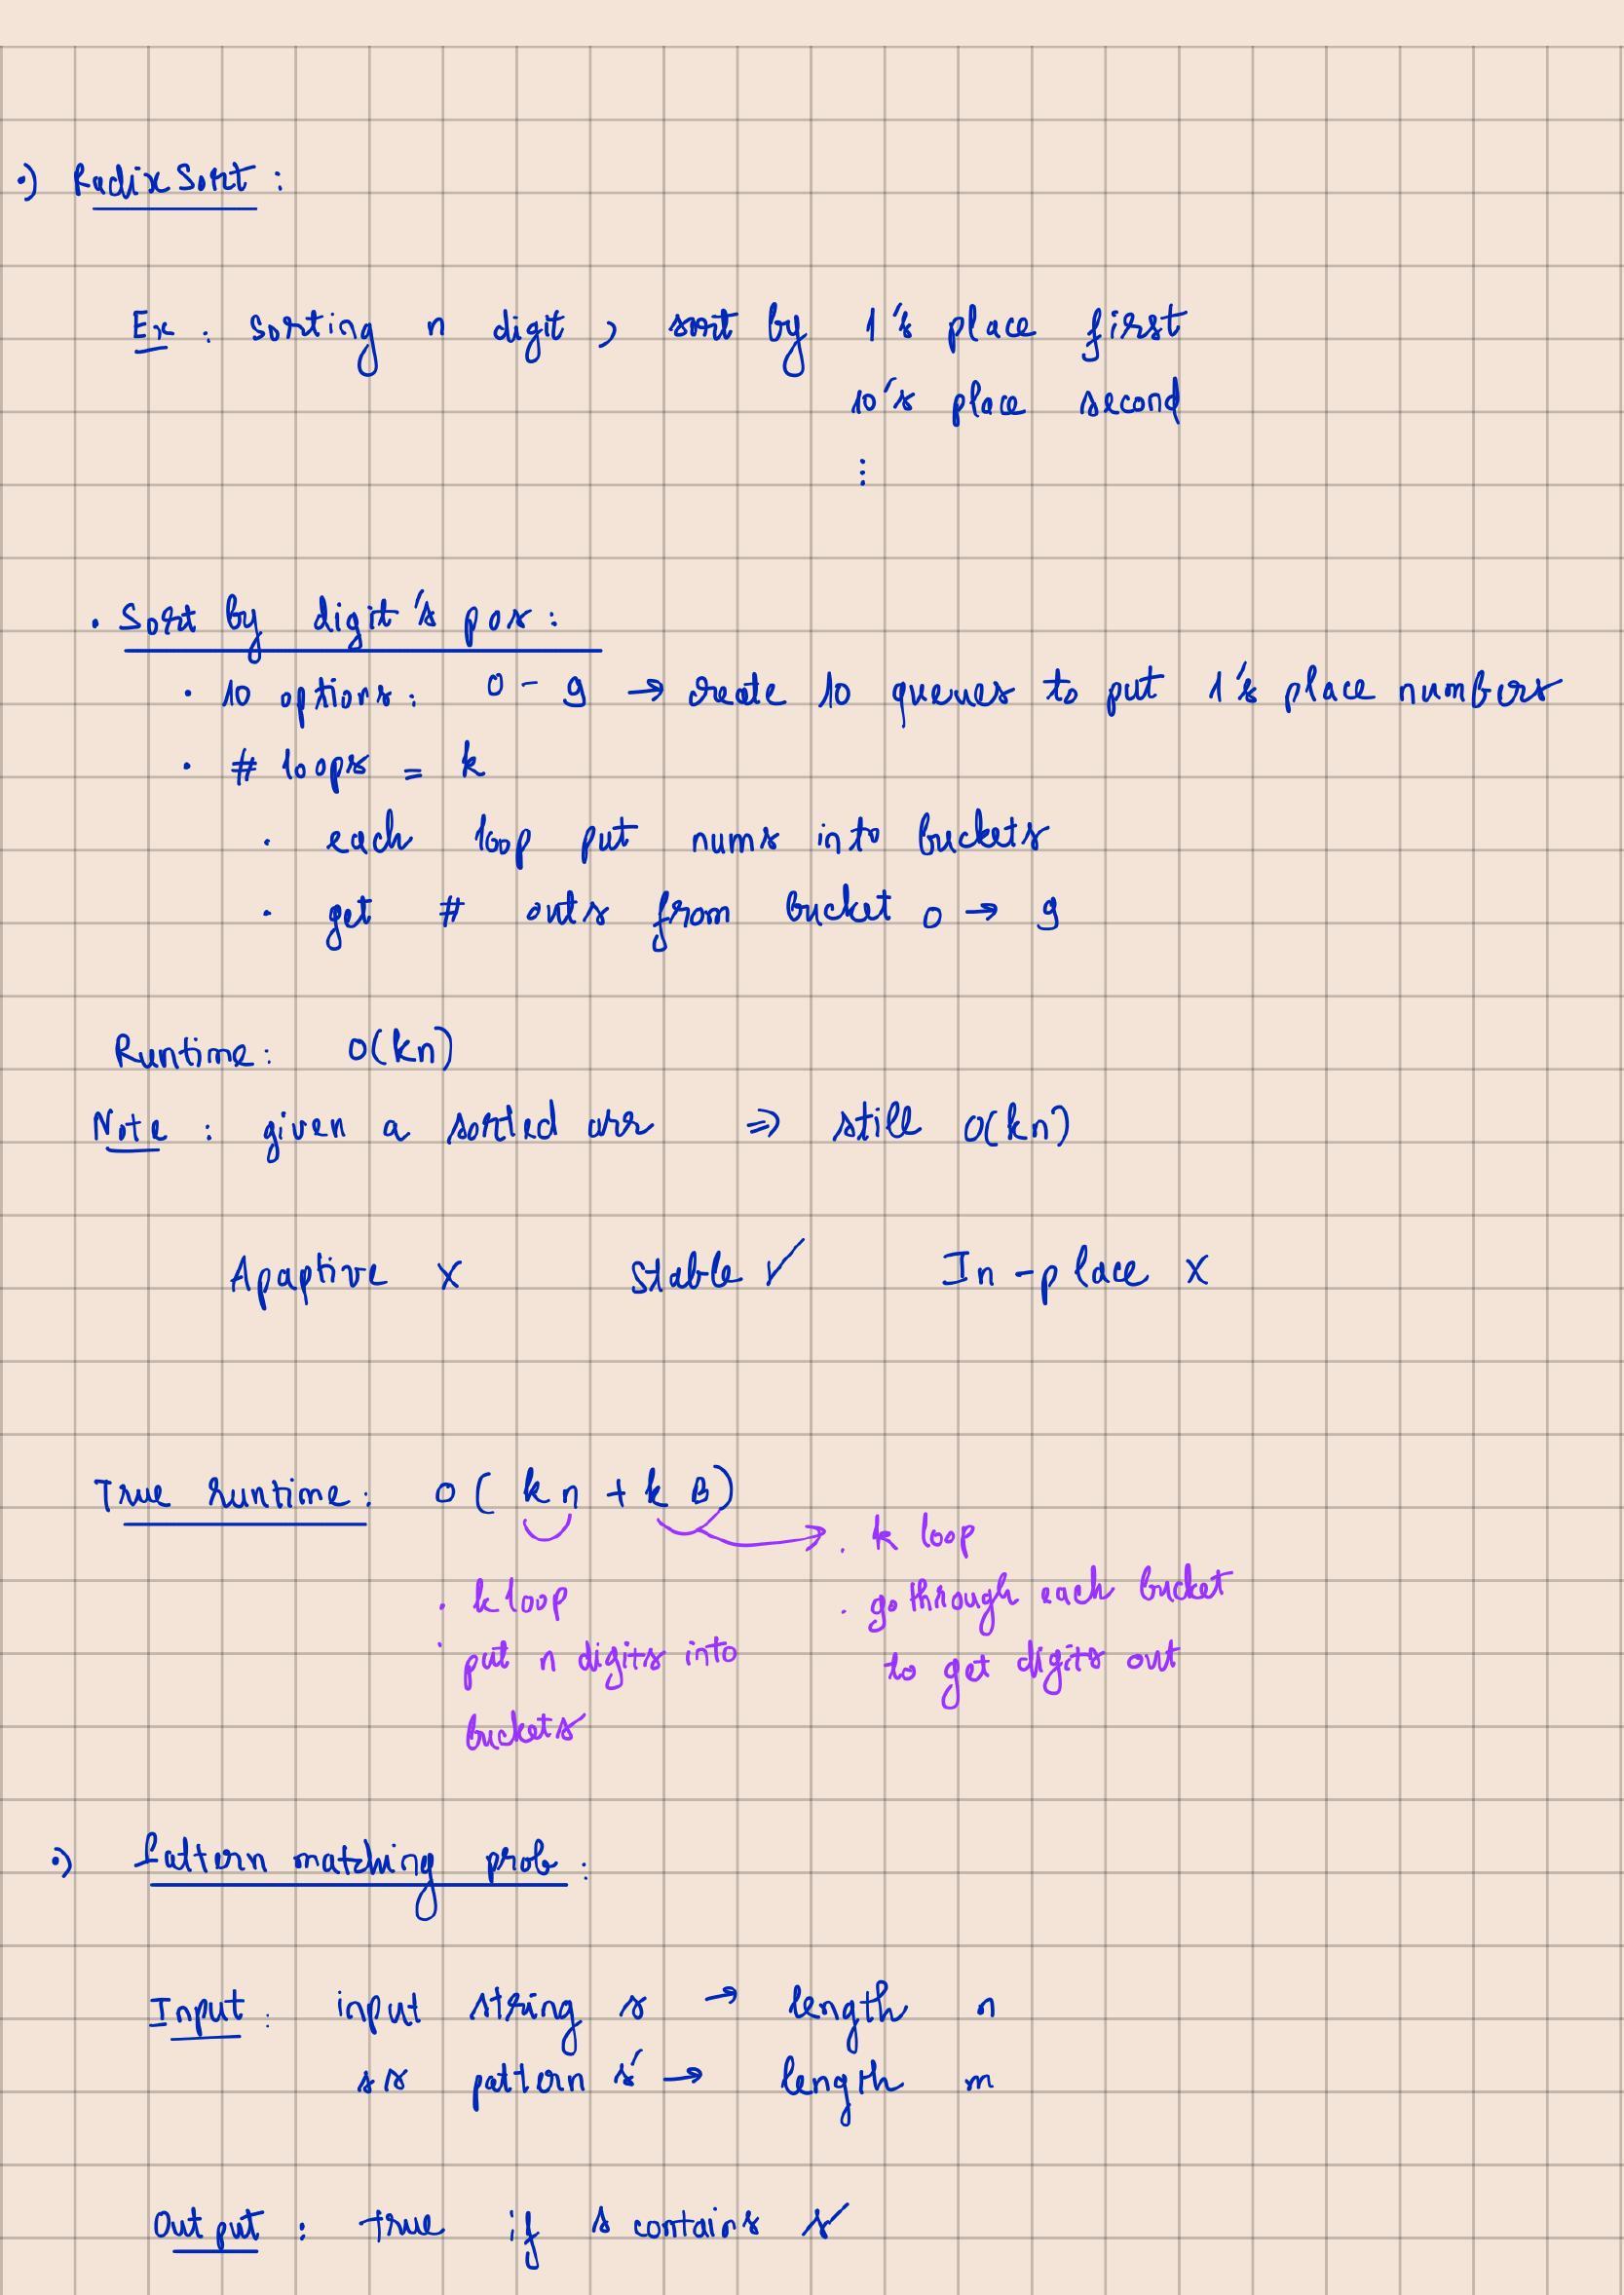 •) Radix Sort :
Ex : sorting n digit , sort by 1's place first
10's place second
⋮
• Sort by digit's pos :
• 10 options : 0 - 9 → create 10 queues to put 1's place numbers
• # loops = k
• each loop put nums into buckets
• get # outs from bucket 0 → 9
Runtime : O(kn)
Note : given a sorted arr ⇒ still O(kn)
Apaptive X Stable ✓ In-place X
True runtime : O ( k n + k B )
• k loop
• put n digits into
buckets
• k loop
• go through each bucket
to get digits out
•) Pattern matching prob :
Input : input string s → length n
ss pattern s' → length m
Output : true if s contains s'